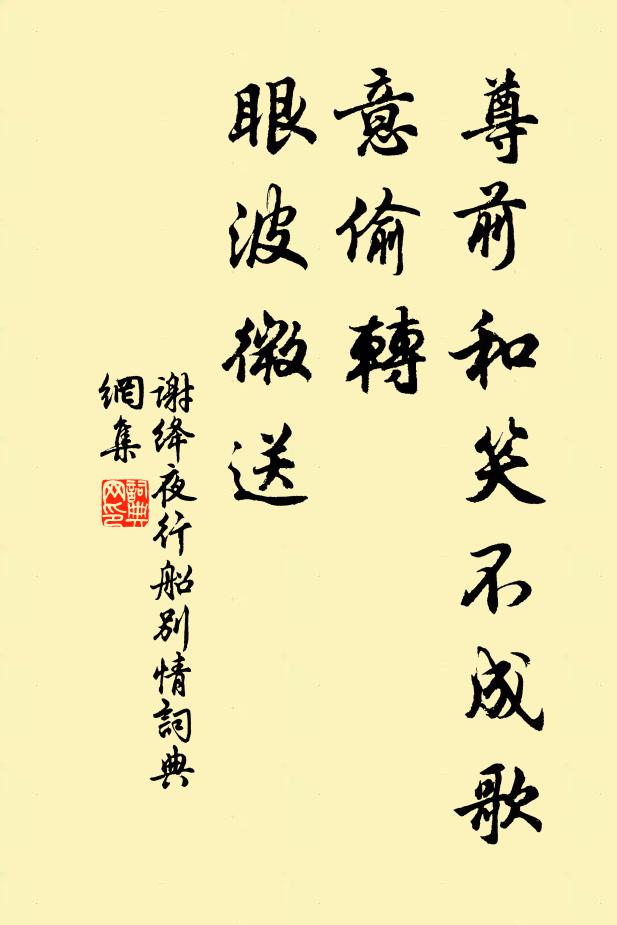 尊前和笑不成歌
意偷轉
眼波微送
谢绛夜行船別情詞典
網集
詞典
网印